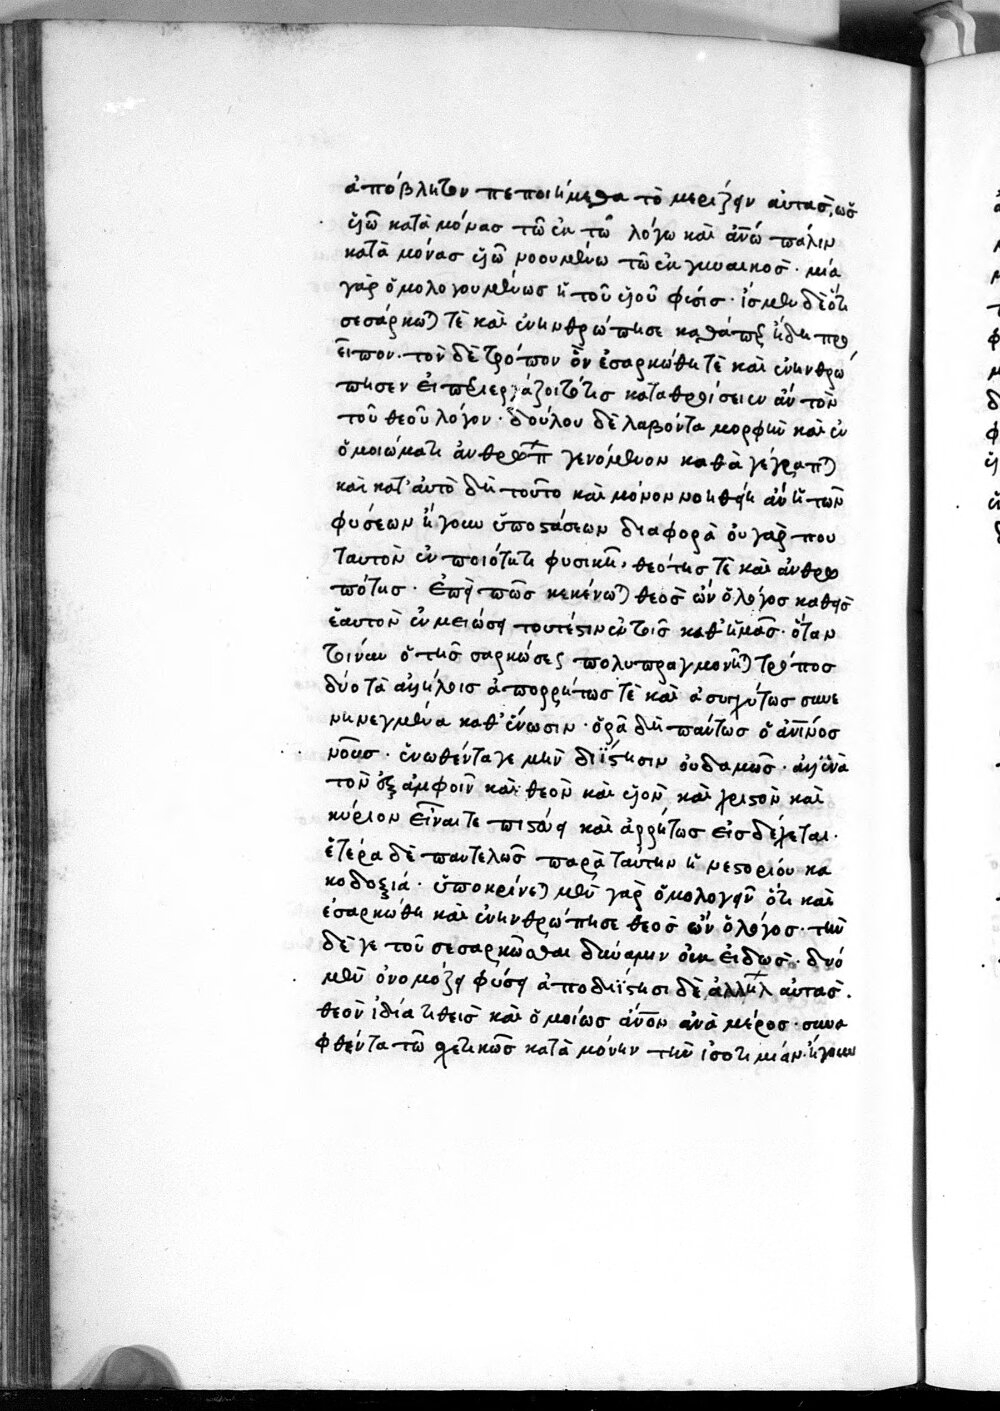 ἀπόβλητον πεποιήμεθα τὸ μερίζειν αὐτὰς, ὡς
υἱῶ κατὰ μόνας τῶ ἐκ τῶ λόγω καὶ ἀνω πάλιν
κατὰ μόνας υἱῶ νοουμένω τῶ ἐκ γυναικὸς · μία
γὰρ ὁμολογουμένως ἡ τοῦ υἱοῦ φύσις · ἴσμεν δὲ ὅτι
σεσάρκωται τὲ καὶ ἐνηνθρώπησε καθάπερ ἤδη προ
εῖπον · τὸν δὲ τρόπον ὃν ἐσαρκώθη τὲ καὶ ἐνηνθρώ
πησεν εἰ περιεργάζοιτό τις καταθρήσειεν ἂν τὸν
τοῦ θεοῦ λόγον · δούλου δὲ λαβόντα μορφὴν καὶ ἐν
ὁμοιώματι ἀνθρώπ γενόμενον καθὰ γέγραπται
καὶ κατ' αὐτὸ δὴ τοῦτο καὶ μόνον νοηθείη ἂν ἡ τῶν
φύσεων ἤγουν ὑποστάσεων διαφορὰ οὐ γάρ που
ταυτὸν ἐν ποιότητι φυσικῆ, θεότης τὲ καὶ ἀνθρω
πότης · ἐπεὶ πῶς κεκένωται θεὸς ὢν ὁ λόγος καθεὶς
ἑαυτὸν ἐν μειώσει τουτέστιν ἐν τοῖς καθ' ἡμᾶς · ὅταν
τοίνυν ὁ τῆς σαρκώσεως πολυπραγμονῆται τρόπος
δύο τὰ ἀλλήλοις ἀπορρήτως τὲ καὶ ἀσυγχύτως συνε
νηνεγμένα καθ' ἕνωσιν · ὁρᾶ δὴ πάντως ὁ ἀνινος
νοῦς · ἑνωθέντα γε μὴν διΐστησιν οὐδαμῶς · ἀλλ' ἕνα
τὸν ἐξ ἀμφοῖν καὶ θεὸν καὶ υἱὸν καὶ χριστὸν καὶ
κύριον εἶναί τε πιστεύει καὶ ἀρρήτως εἰσδέχεται ·
ἑτέρα δὲ παντελῶς παρὰ ταύτην ἡ νεστορίου κα
κοδοξία · ὑποκρίνεται μὲν γὰρ ὁμολογεῖν ὅτι καὶ
ἐσαρκώθη καὶ ἐνηνθρώπησε θεὸς ὢν ὁ λόγος · τὴν
δέ γε τοῦ σεσαρκῶσθαι δύναμιν οὐκ εἰδὼς · δύο
μὲν ὀνομάζει φύσεις ἀποδιΐστησι δὲ ἀλλήλ αὐτὰς ·
θεὸν ἰδία τιθεὶς καὶ ὁμοίως ἀνον ἀνὰ μέρος · συνα
φθέντα τῶ σχετικῶς κατὰ μόνην τὴν ἰσοτιμίαν · ἤγουν